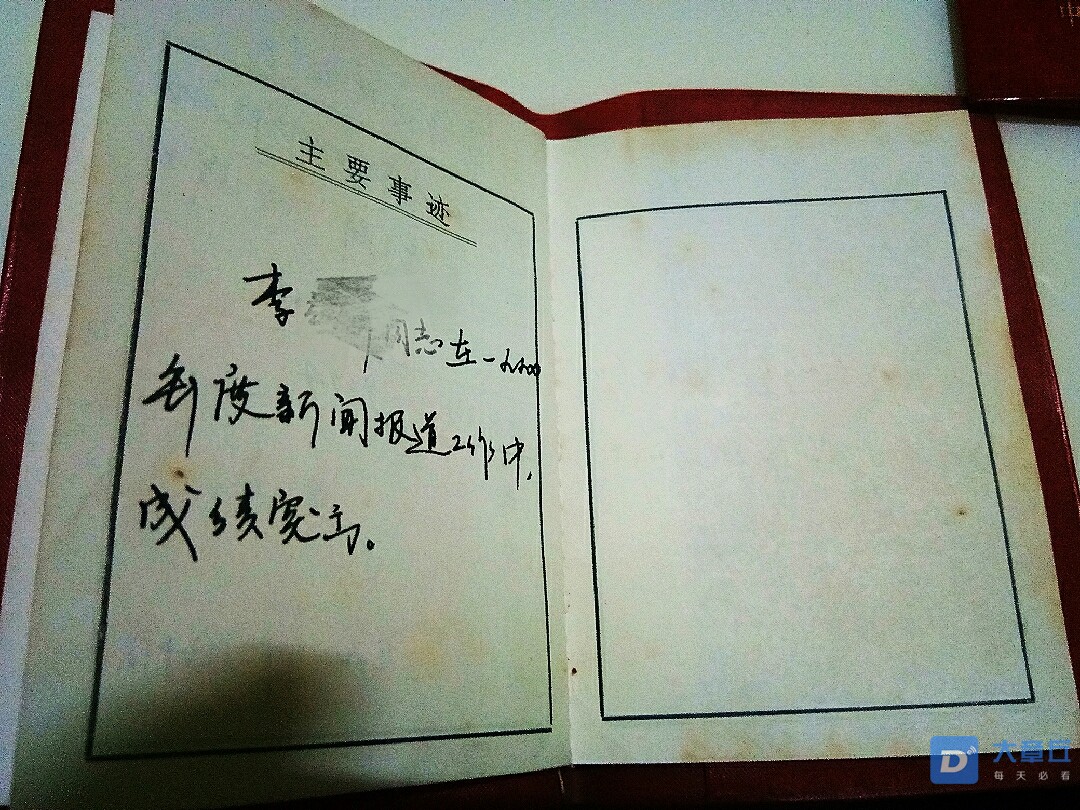 主要事迹
李 同志在一九
年度新闻报道工作中,
成绩突出。
中
大章庄
每天必看